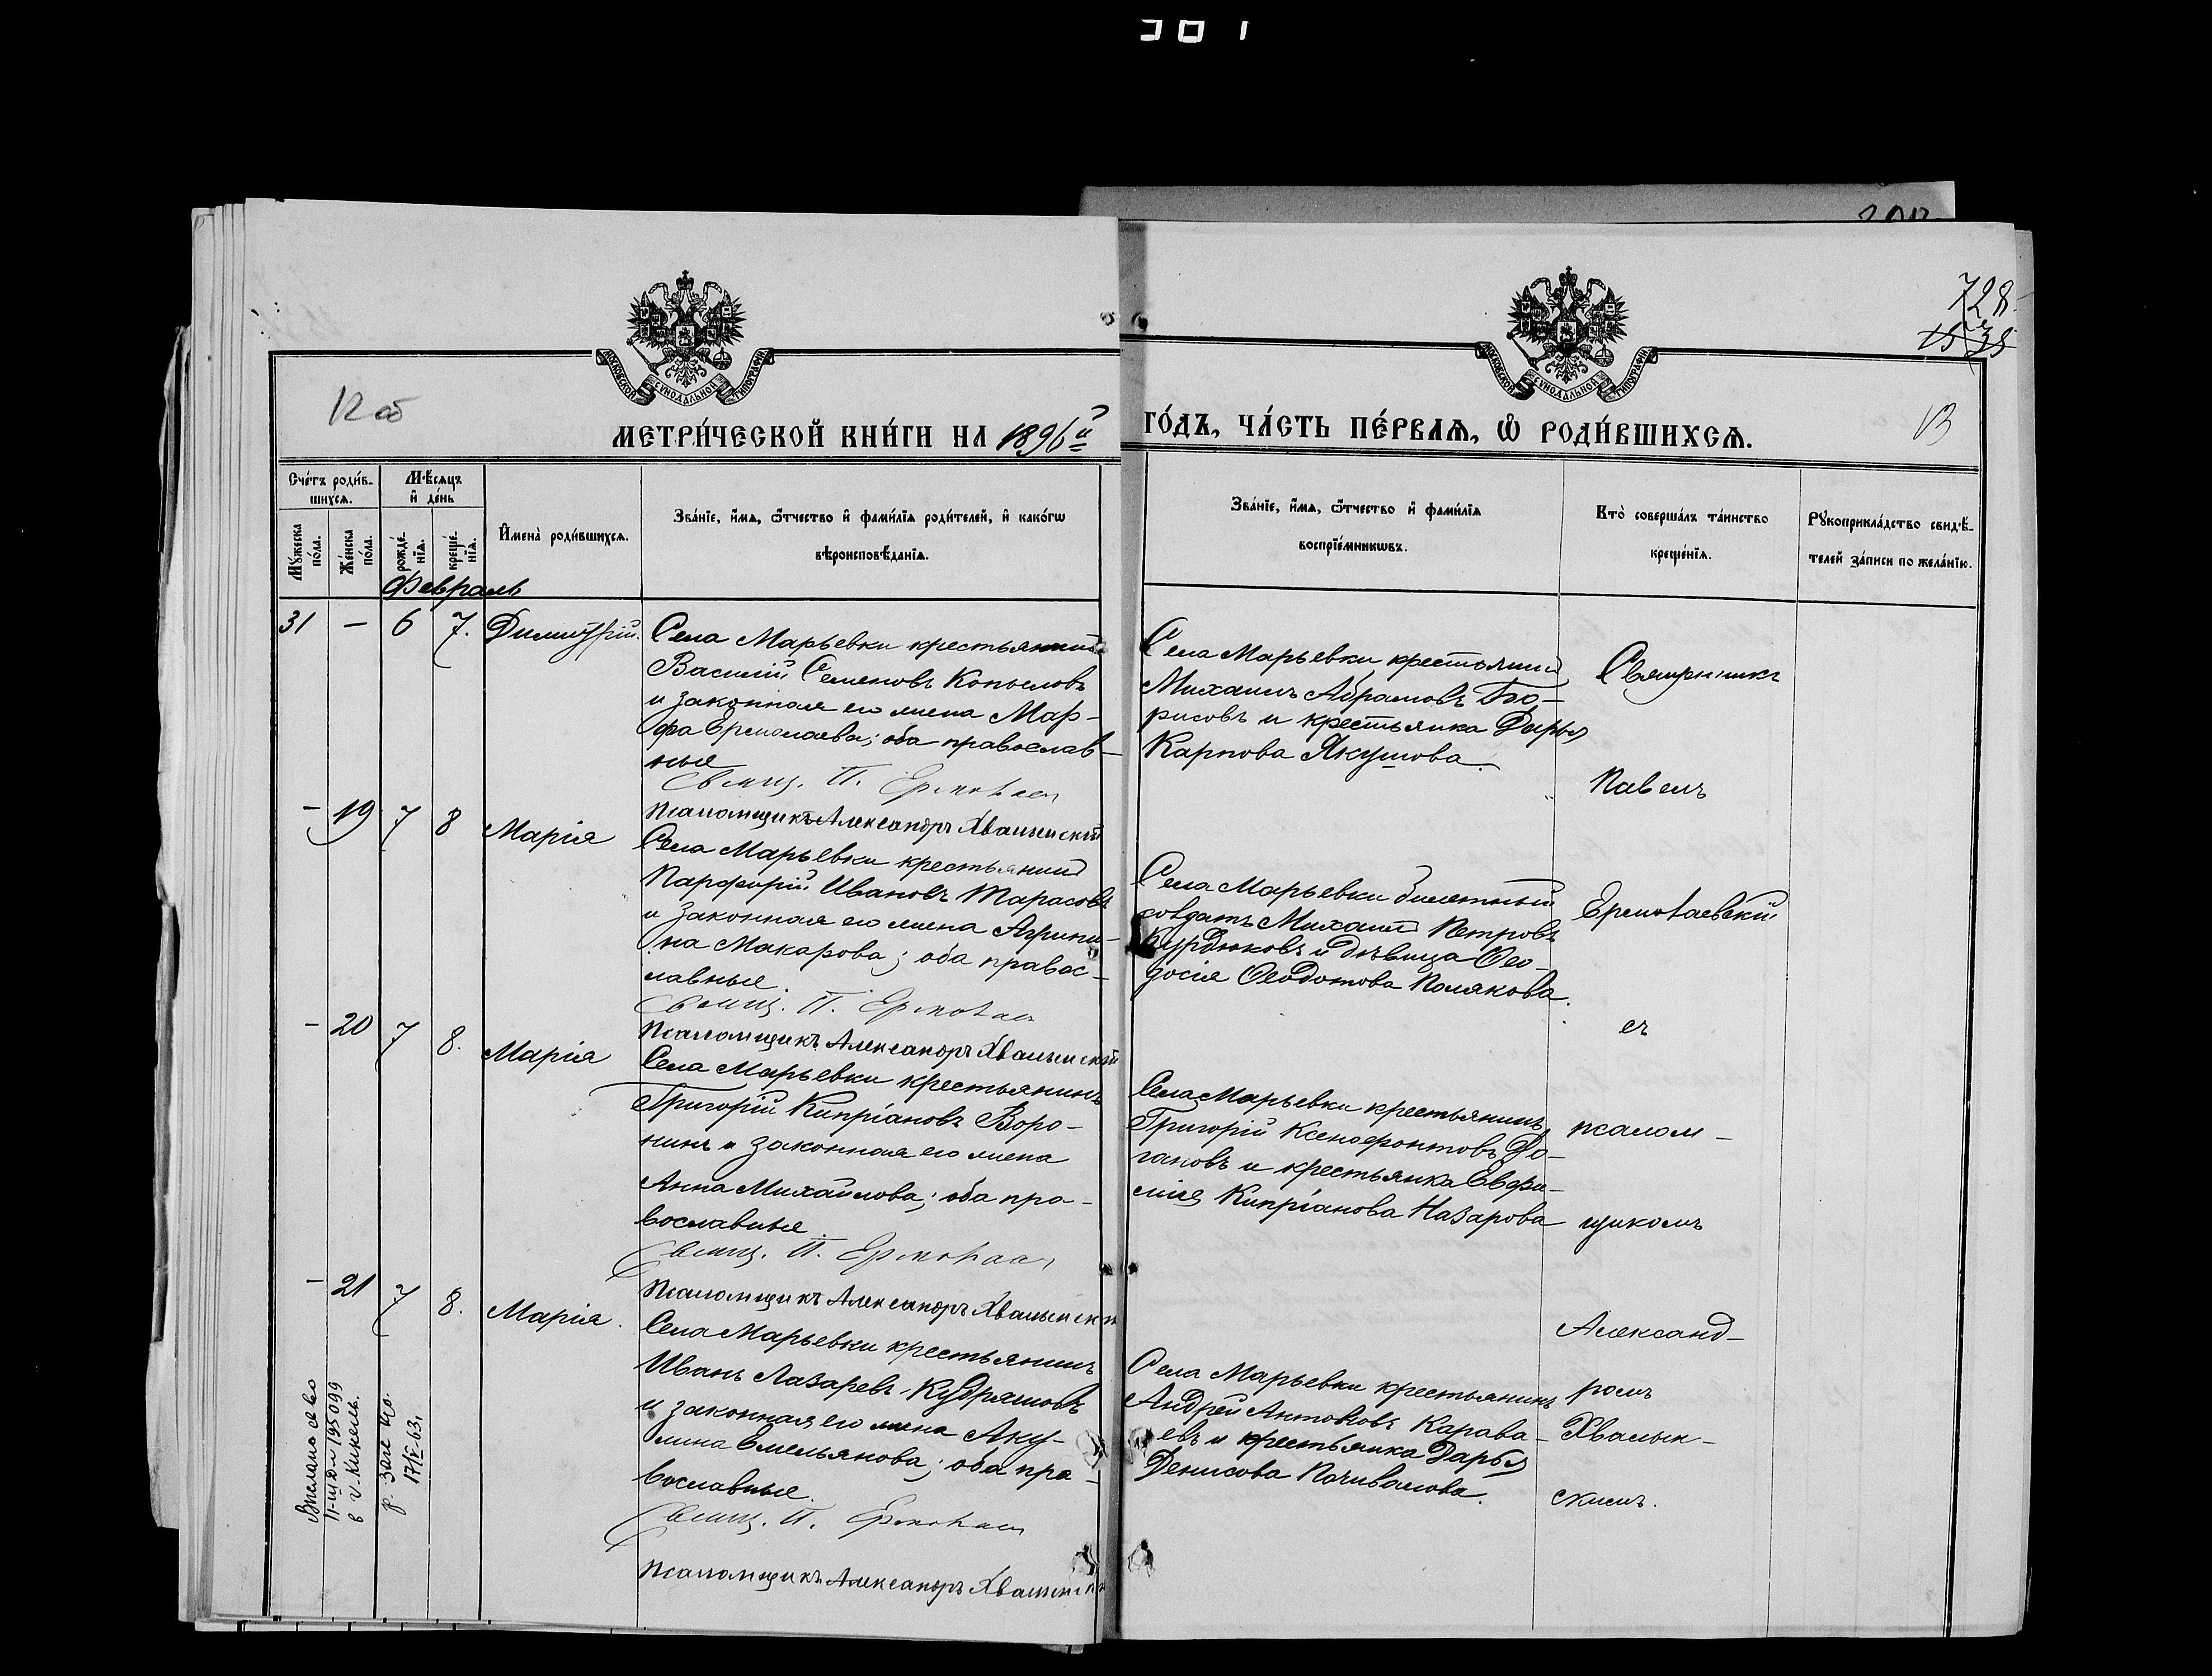 728
12 об
МЕТРИ́ЧЕСКОЙ КНИ́ГИ НА 1896й
ГО́ДЪ, ЧА́СТЬ ПЕ́РВАѦ, Ѡ РОДИ́ВШИХСѦ.
13
Сче́тъ роди́в-
шихсѧ.
Мѣ́сѧцъ
и҆ де́нь
Му́жеска
по́ла.
Же́нска
по́ла.
рожде́-
нїѧ.
креще́-
нїѧ.
И҆мена̀ роди́вшихсѧ.
Зва́нїе, и҆́мѧ, ѻ҆́тчество и҆ фами́лїѧ роди́телей, и҆ како́гѡ
вѣроисповѣ́данїѧ.
Зва́нїе, и҆́мѧ, ѻ҆́тчество и҆ фами́лїѧ
воспрїе́мникѡвъ.
Кто̀ соверша́лъ та́инство
креще́нїѧ.
Рꙋкоприкла́дство свидѣ́-
телей за́писи по жела́нїю.
Февраль
31 — 6 7. Димитрій.
Села Марьевки крестьянинъ
Василій Семеновъ Копыловъ
и законная его жена Мар-
фа Ермолаева; оба православ-
ные
Свящ. П. Ермолаев
Псаломщикъ Александръ Хвалынскій
Села Марьевки крестьянинъ
Михаилъ Абрамовъ Бо-
рисовъ и крестьянка Дарья
Карпова Якушова.
— 19 7 8 Марія
Села Марьевки крестьянинъ
Парфирій Ивановъ Тарасовъ
и законная его жена Агрипи-
на Макарова; оба правос-
лавные.
Свящ. П. Ермолаев
Псаломщикъ Александръ Хвалынскій
Села Марьевки билетный
солдатъ Михаилъ Петровъ
Курдюковъ и дѣвица Ѳео-
досія Ѳеодотова Полякова.
— 20 7 8. Марія
Села Марьевки крестьянинъ
Григорій Кипріановъ Воро-
нинъ и законная его жена
Анна Михайлова; оба пра-
вославные
Свящ. П. Ермолаев
Псаломщикъ Александръ Хвалынскій
Села Марьевки крестьянинъ
Григорій Ксенофонтовъ До-
гановъ и крестьянка Евфи-
мія Кипріанова Назарова
— 21 7 8. Марія.
Села Марьевки крестьянинъ
Иванъ Лазаревъ Кудряшовъ
и законная его жена Аку-
лина Емельянова; оба пра-
вославные.
Свящ. П. Ермолаев
Псаломщикъ Александръ Хвалынскій
Села Марьевки крестьянинъ
Андрей Антоновъ Карава-
евъ и крестьянка Дарья
Денисова Почивалова.
Священникъ
Павелъ
Ермолаевскій
съ
псалом-
щикомъ
Александ-
ромъ
Хвалын-
скимъ.
Выслано св во
195099
в г. Кинель.
р. загс
63.